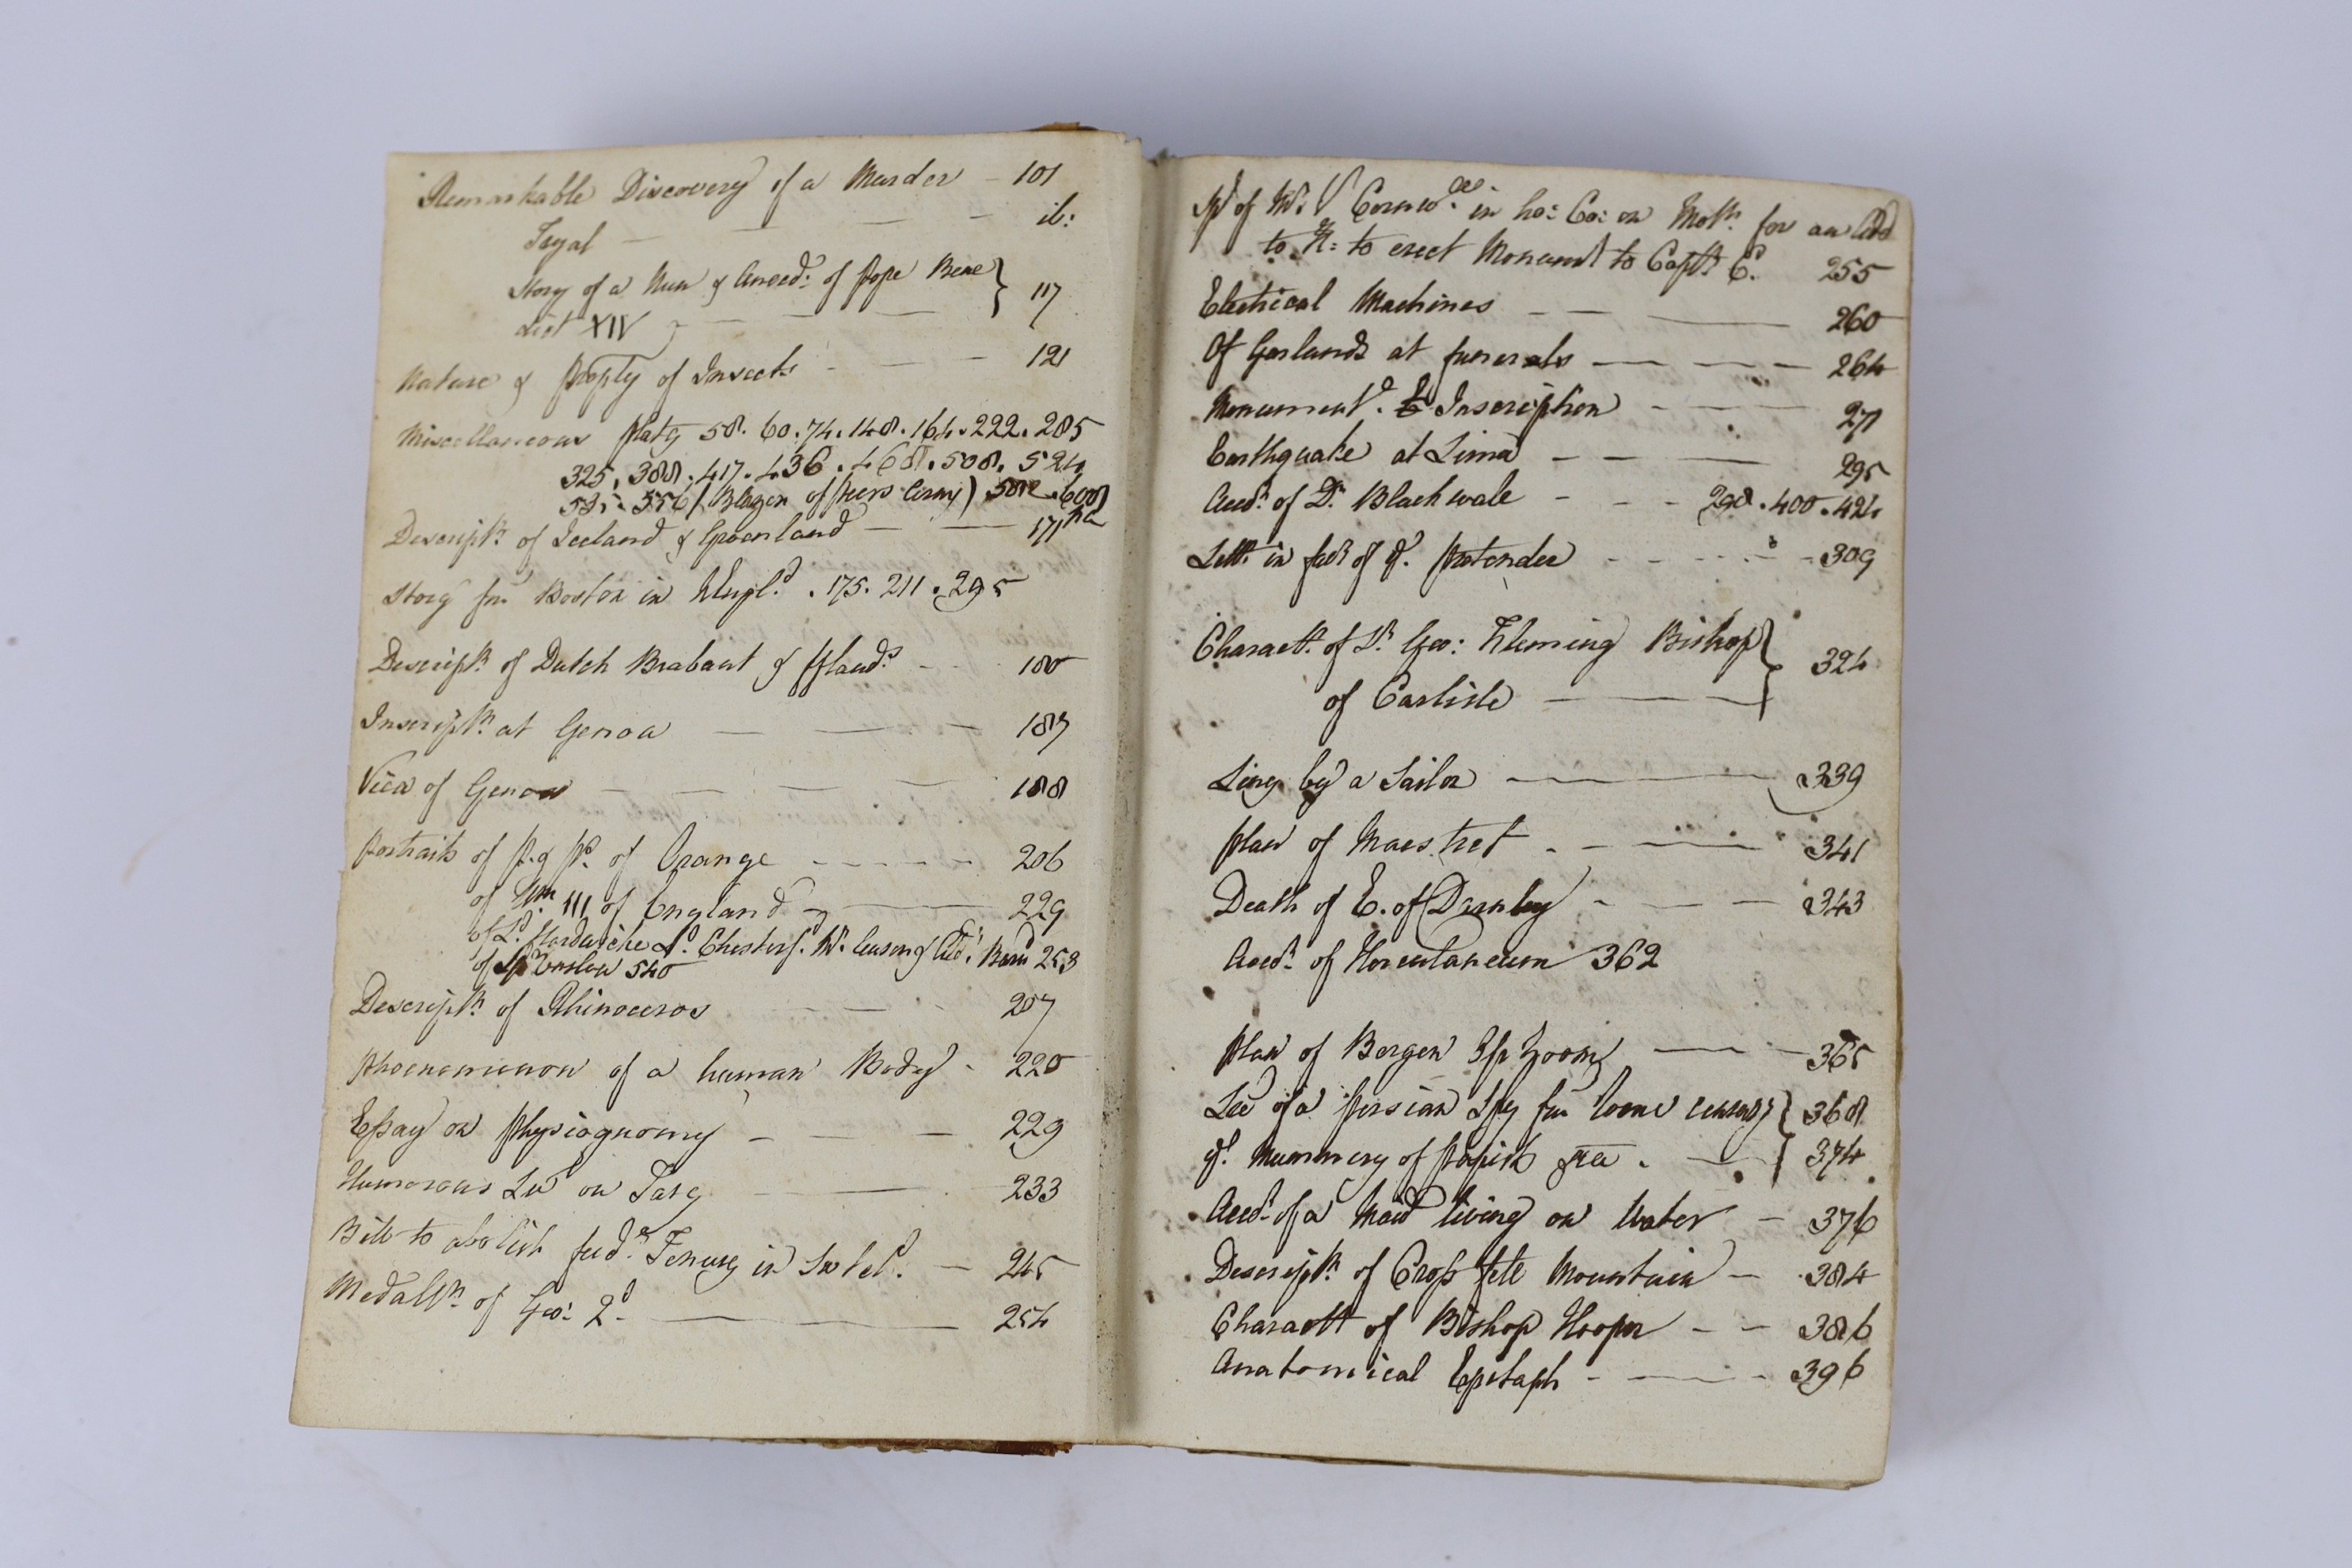 Remarkable Discovery of a Murder – 101
Tryal — — – ib:
Story of a Nun & Anecd: of Pope Bene } 117
dict XIV — — —
Nature & Prop'ty of Insects – — – 121
Miscellaneous Plats 58. 60. 74. 148. 164. 222. 285
325. 388. 417. 436. 468. 508. 524
535. 556 (Blazon of Peers Arms)
Descript:n of Iceland & Groenland — — 171
Story fm Boston in . 175. 211. 295
Descript:n of Dutch Brabant & Fland:s – – 180
Inscript:n at Genoa — — – 187
View of Genoa – – — – 188
Portraits of P. & Ps. of Orange – – – – 206
of Wm III of England – — 229
of Ld. Hardwicke Ld. Chesterf:d Mr. Anson & Barn 253
of Onslow 540
Descript:n of Rhinoceros – — – 207
Phoenomenon of a human Body – 220
Eſsay on Physiognomy – — – 229
Humorous on – — – 233
Bill to abolish feud:l Tenures in Scotl:d. – 245
Medall:n of Geo: 2d. — — 254
Sp:h of Mr. Cornw:ll in ho: Co: on Mot:n for an Add
to K: to erect Monum:t to Capt:n C. 255
Electrical Machines – — — 260
Of Garlands at funerals — — – – 264
Monument. & Inscription – – — 271
Earthquake at Lima – – — 295
Acco:t of Dr. Blackwall – – – 298. 400. 424
Lett: in fav:r of ye. Pretender – – – – 309
Charact:r of Sr. Geo: Fleming Bishop } 324
of Carlisle — — —
by a Sailor — — 339
Plan of Maestrict . – — — 341
Death of E. of Darnley – – – 343
Acco:t of Herculaneum 362
Plan of Bergen Op Zoom — — 365
of a Persian Spy fm Rome } 368
ye. Mummery of Papists &ca . — 374
Acco:t of a Maid living on Water – 376
Descript:n of Croſs fell Mountain – 384
Charact:r of Bishop Hooper – – 386
Anatomical Epitaph – — – – 396